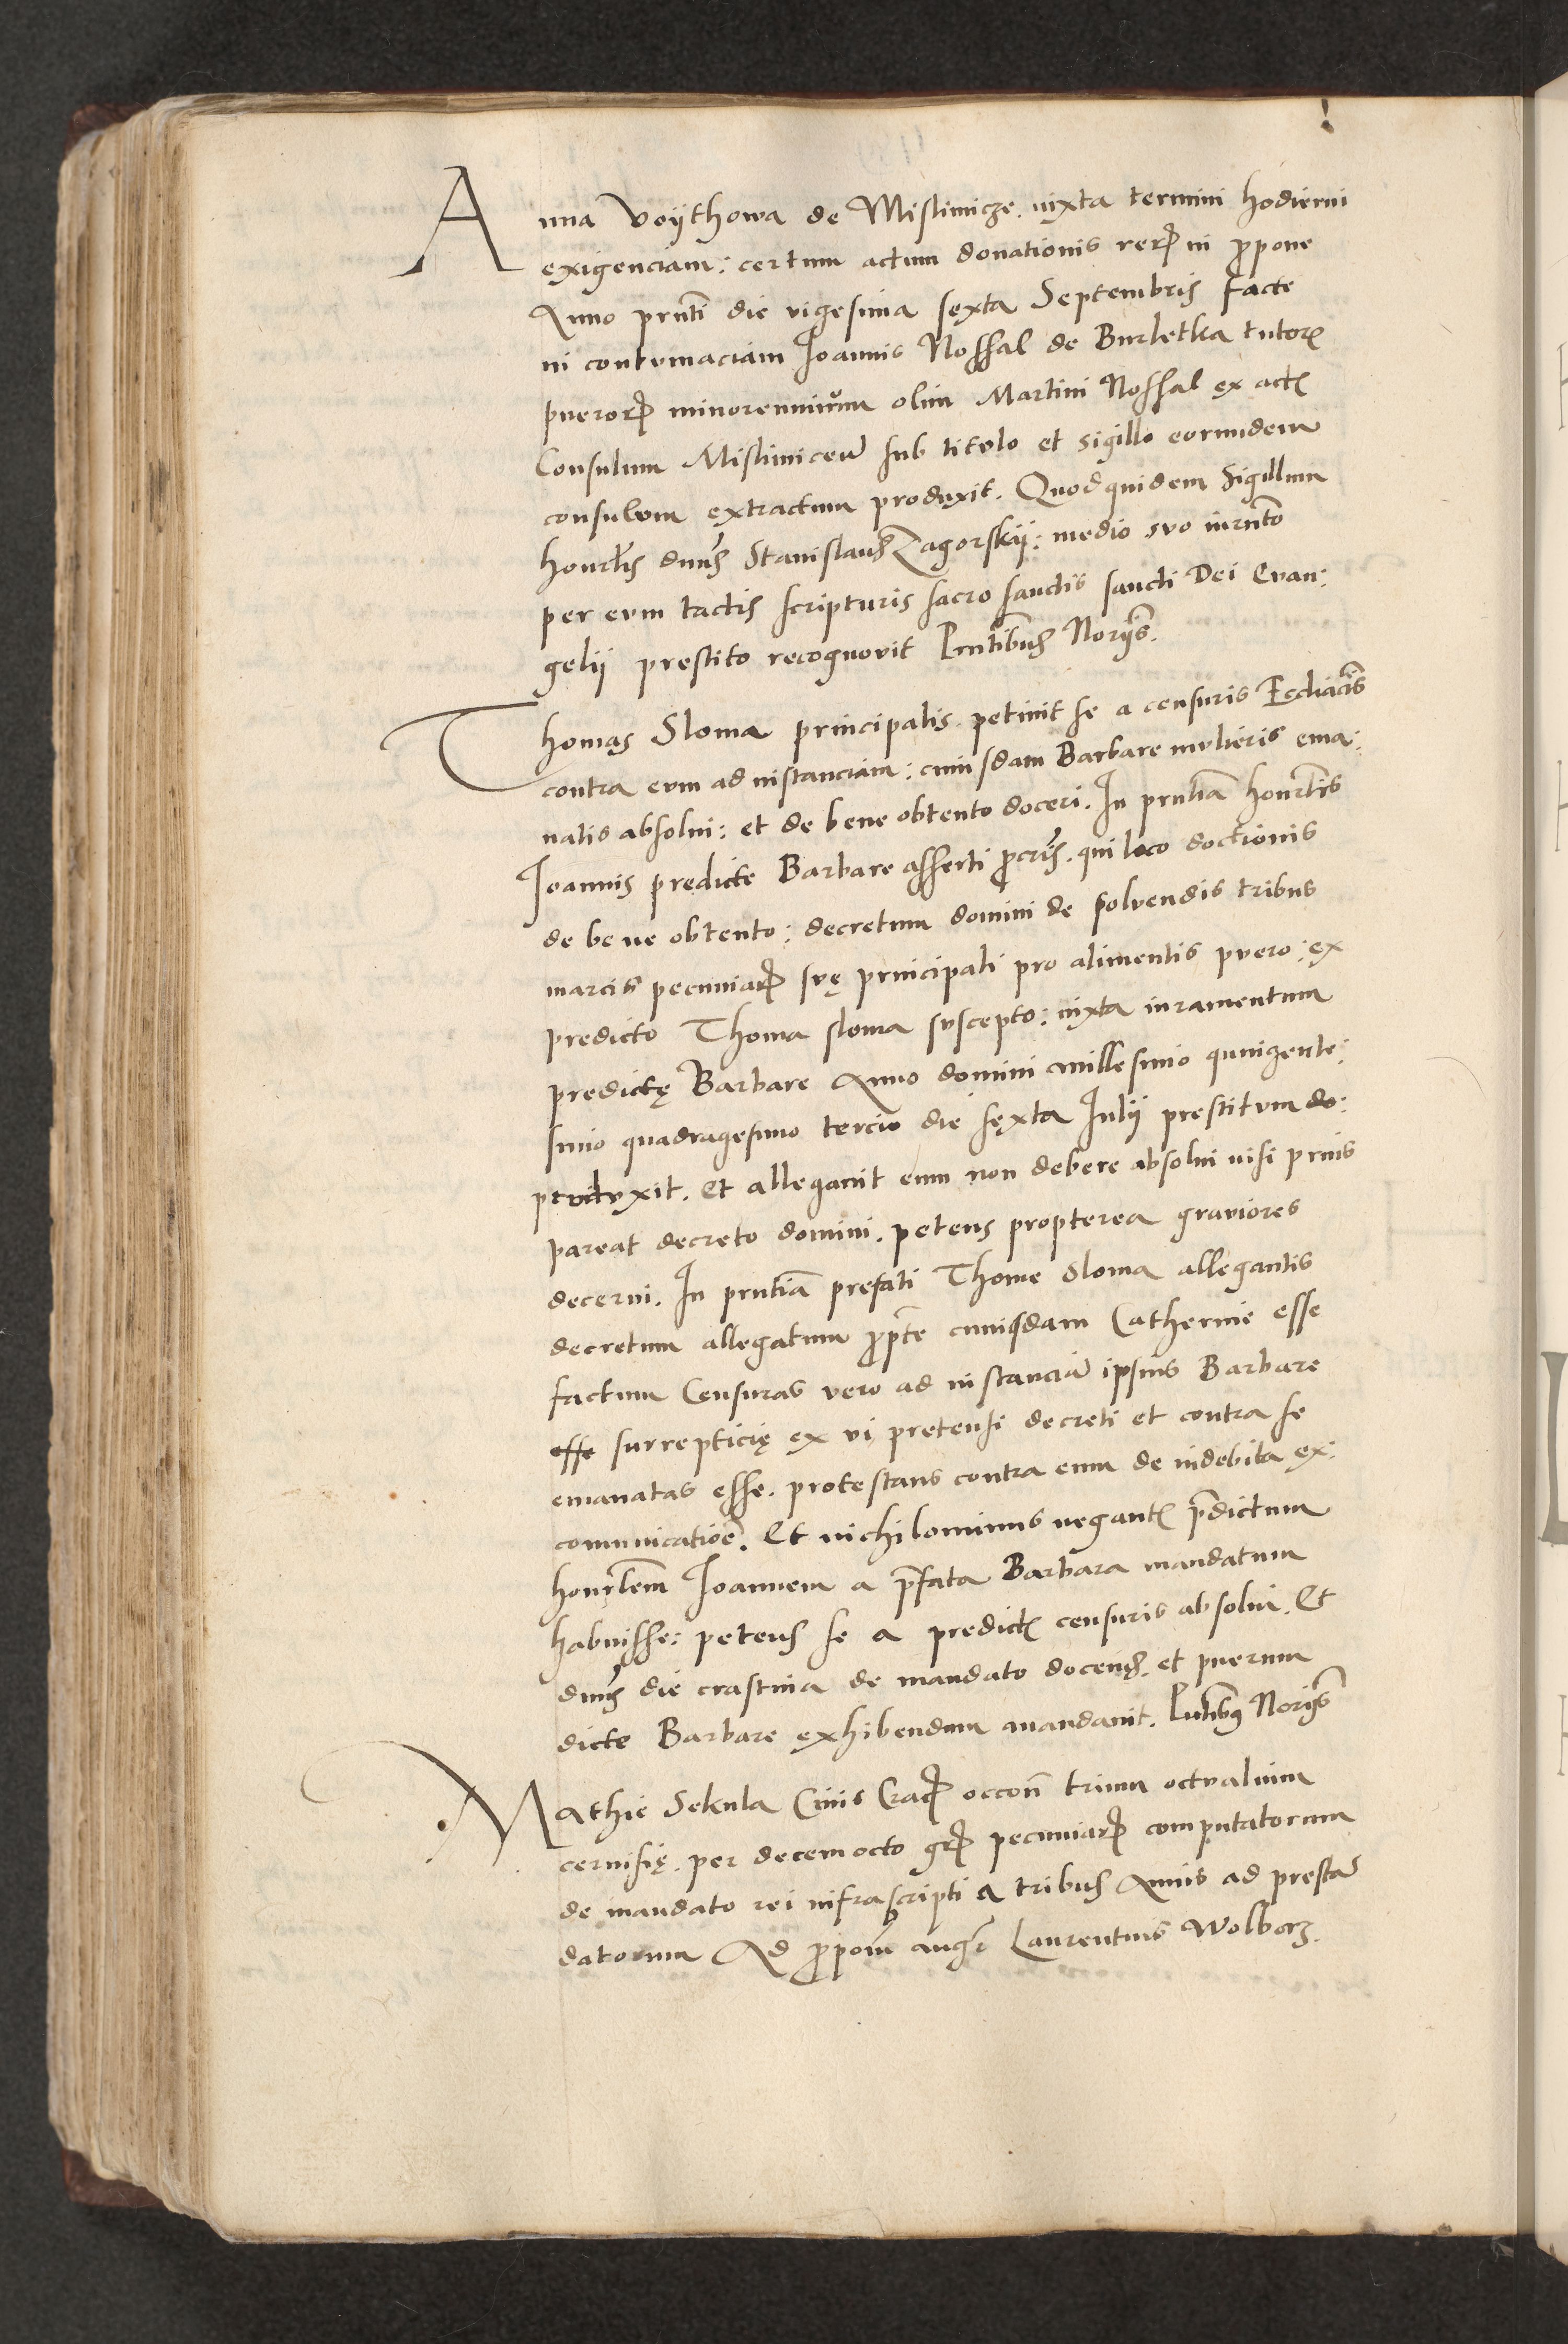 Anna Voÿthowa de Mislimicze. iuxta termini hodierni
exigenciam: certum actum donationis reꝝ in ꝓpone
Anno pn̄ti die vigesima sexta Septembris facte
in contumaciam Ioannis Nossal de Burletka tutorꝭ
pueroꝝ minorennium olim Martini Nossal ex actꝭ
Consulum Mislimiceñ sub titulo et sigillo eorundem
consulum extractum produxit. Quodquidem Sigillum
honr̄lis dnūs Stanislaus Zagorskij: medio suo iurn̄to
per eum tactis scripturis sacro sanctis sancti Dei Euan:
gelij prestito recognouit Pn̄tibus Norijs.
Thomas Sloma principalis. petiuit se a censuris Eccliacīs
contra eum ad instanciam: cuiusdam Barbare mulieris ema:
natis absolui: et de bene obtento doceri. In pn̄tia honr̄lis
Ioannis predicte Barbare asserti ꝓcris. qui loco doctionis
de bene obtento: decretum domini de soluendis tribus
marcis pecuniaꝝ suę principali pro alimentis puero: ex
predicto Thoma sloma suscepto: iuxta iuramentum
predictę Barbare Anno domini millesimo quingente:
simo quadragesimo tercio die sexta Iulij prestitum do:
produxit. Et allegauit eum non debere absolui nisi prius
pareat decreto domini. petens propterea grauiores
decerni. In pn̄tia prefati Thome Sloma allegantis
decretum allegatum ꝓ pte cuiusdam Catherine esse
factum Censuras vero ad instanciā ipsius Barbare
esse surrepticię ex vi pretensi decreti et contra se
emanatas esse. protestans contra eum de indebita ex:
comunicatioē. Et nichilominus negantꝭ p̄dictum
honr̄lem Ioannem a p̄fata Barbara mandatum
habuisse: petens se a predictꝭ censuris absolui. Et
dnūs die crastina de mandato docenḍ. et puerum
dicte Barbare exhibendum mandauit. Pn̄tibus Norijs
Mathie Sekula Ciuis Cracꝭ occoñ trium octualium
ceruisię. per decemocto gꝝ pecuniaꝝ computatorum
de mandato rei infrascripti a tribus Annis ad prestā
datorum Ad ꝓpoñ augꝭ Laurentius Wolborz.